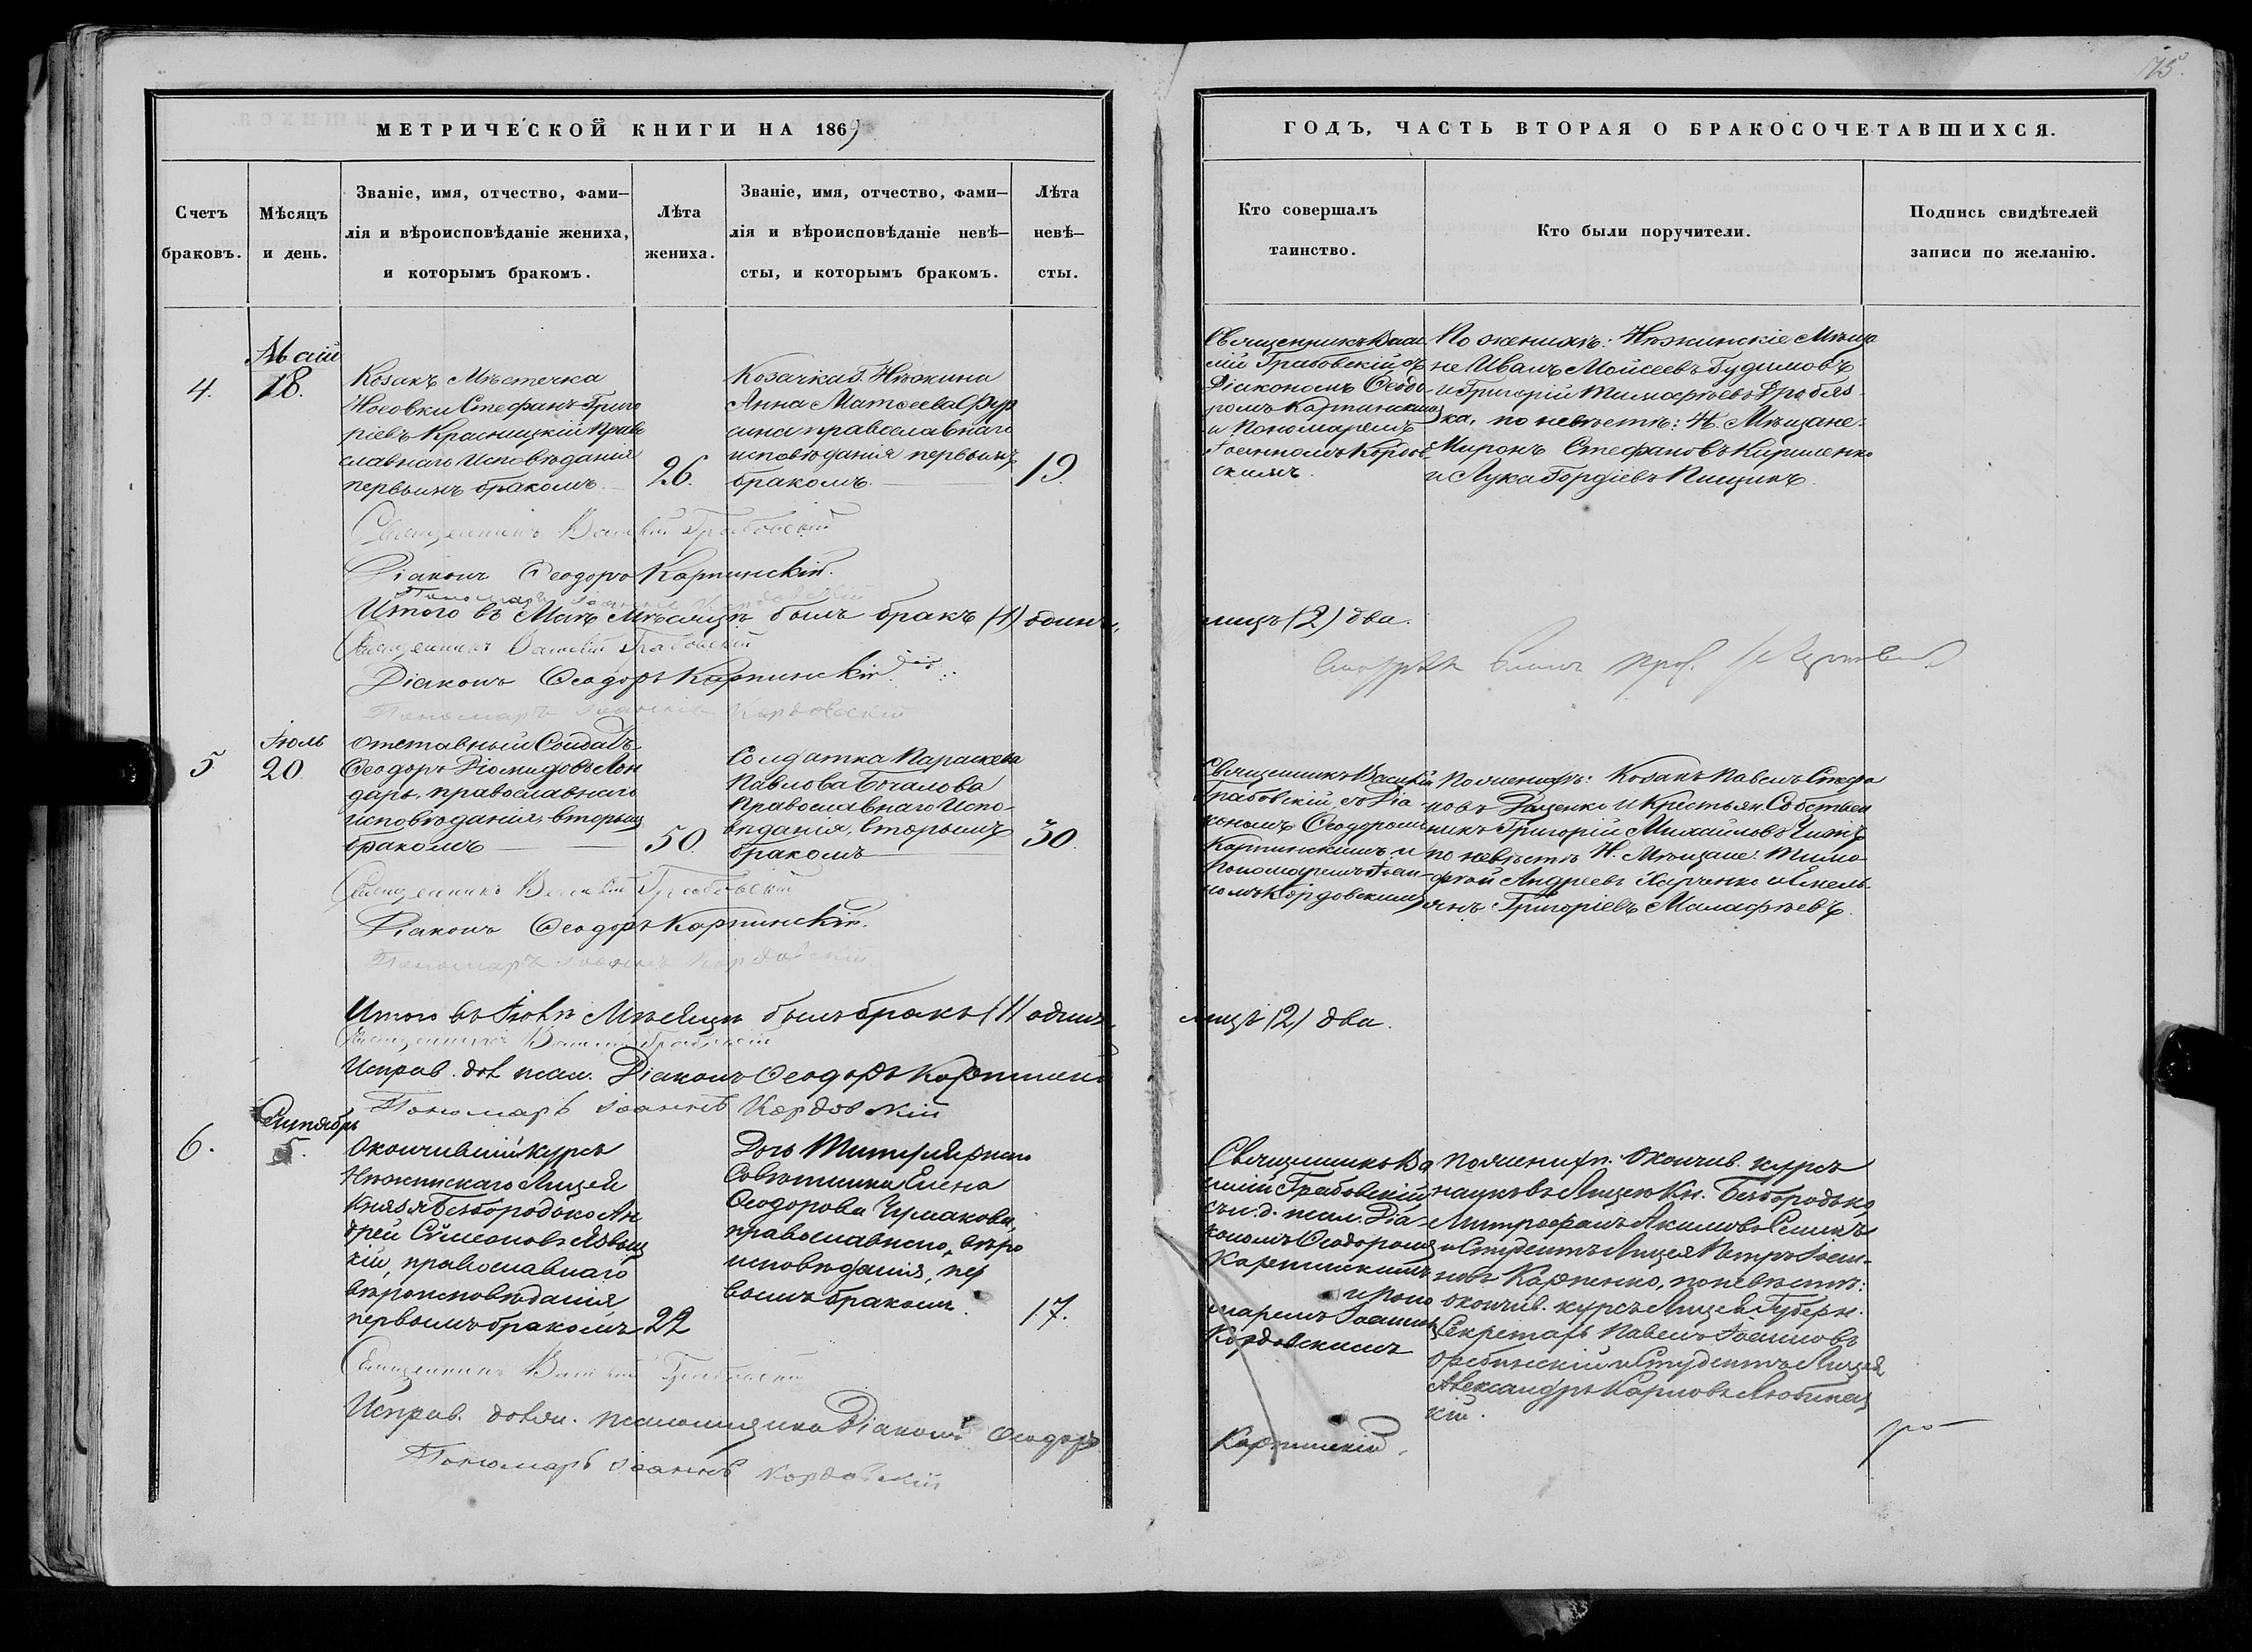 175.
МЕТРИЧЕСКОЙ КНИГИ НА 1869
ГОДЪ, ЧАСТЬ ВТОРАЯ О БРАКОСОЧЕТАВШИХСЯ.
Счетъ
браковъ.
Мѣсяцъ
и день.
Званіе, имя, отчество, фами-
лія и вѣроисповѣданіе жениха,
и которымъ бракомъ.
Лѣта
жениха.
Званіе, имя, отчество, фами-
лія и вѣроисповѣданіе невѣ-
сты, и которымъ бракомъ.
Лѣта
невѣ-
сты.
Кто совершалъ
таинство.
Кто были поручители.
Подпись свидѣтелей
записи по желанію.
4.
Маій
18.
Козакъ Мѣстечка
Носовки Стефанъ Григо
ріевъ Красницкій Право
славнаго Исповѣданія
первымъ бракомъ.
26.
Козачка г. Нѣжина
Анна Матѳеева
православнаго
исповѣданія первымъ
бракомъ.
19.
Священникъ Васи
лій Грабовскій съ
Діакономъ Ѳеодо
ромъ Карпинскимъ
и Пономаремъ
Іоанномъ Кордов
скимъ.
По женихѣ: Нѣжинскіе Мѣща
не Иванъ Моисеевъ Будимовъ
и Григорій Тимофѣевъ Дробяз
ка, по невѣстѣ: Н. Мѣщане:
Миронъ Стефановъ Кириленко
и Лука Гордіевъ Пищикъ.
Священникъ Василій Грабовскій
Діаконъ Ѳеодоръ Карпинскій.
Пономарь Іоаннъ Кордовскій
Итого въ Маѣ Мѣсяцѣ былъ бракъ (1) одинъ,
лицъ (2) два.
Священникъ Василій Грабовскій
Діаконъ Ѳеодоръ Карпинскій
Пономарь Іоаннъ Кордовскій
5
Іюль
20
Отставный Солдатъ
Ѳеодоръ Діомидовъ Лон
дарь, православнаго
исповѣданія, вторымъ
бракомъ
50.
Солдатка Параскева
Павлова Богалова
Православнаго Испо-
вѣданія, вторымъ
бракомъ
30.
Священникъ Василій
Грабовскій, съ Діа
кономъ Ѳеодоромъ
Карпинскимъ и
Пономаремъ Іоан-
номъ Кордовскимъ
По женихѣ: Козакъ Павелъ Стефа
новъ и Крестьян. Собствен
никъ Григорій Михайловъ
по невѣстѣ Н. Мѣщане: Тимо
фей Андреевъ Харченко и Емель
янъ Григоріевъ Малафѣевъ.
Священникъ Василій Грабовскій
Діаконъ Ѳеодоръ Карпинскій.
Пономарь Іоаннъ Кордовскій
Итого въ Іюлѣ Мѣсяцѣ былъ бракъ (1) одинъ,
лицъ (2) два.
Священникъ Василій Грабовскій
Исправ. дол псал. Діаконъ Ѳеодоръ Карпинскій
Пономарь Іоаннъ Кордовскій
6.
Сентябрь
5.
Окончившій курсъ
Нѣжинскаго Лицея
Князя Безбородько Ан
дрей Сѵмеоновъ Явниц
кій, православнаго
вѣроисповѣданія
первымъ бракомъ
22
Дочь Титулярнаго
Совѣтника Елена
Ѳеодорова Чумакова,
православнаго вѣро
исповѣданія, пер
вымъ бракомъ.
17.
Священникъ Ва
силій Грабовскій
съ и. д. псал. Діа-
кономъ Ѳеодоромъ
Карпинскимъ
и Поно
маремъ Іоанномъ
Кордовскимъ
По женихѣ: Окончив. курсъ
наукъ въ Лицеѣ Кн. Безбородько
Митрофанъ Акимовъ
и Студентъ Лицея Петръ Іоан-
новъ Карпенко, по невѣстѣ:
окончив. курсъ Лицея Губерн.
Секретарь Павелъ Іоанновъ
и Студентъ Лицея
Александръ Карповъ Любинец
кій.
Священникъ Василій Грабовскій
Исправ. долж. псаломщика Діаконъ Ѳеодоръ
Карпинскій.
Пономарь Іоаннъ Кордовскій